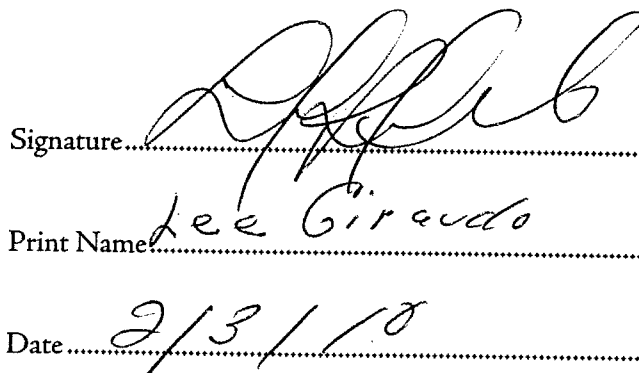 Signature
Print Name Lee Giraudo
Date 2/3/18